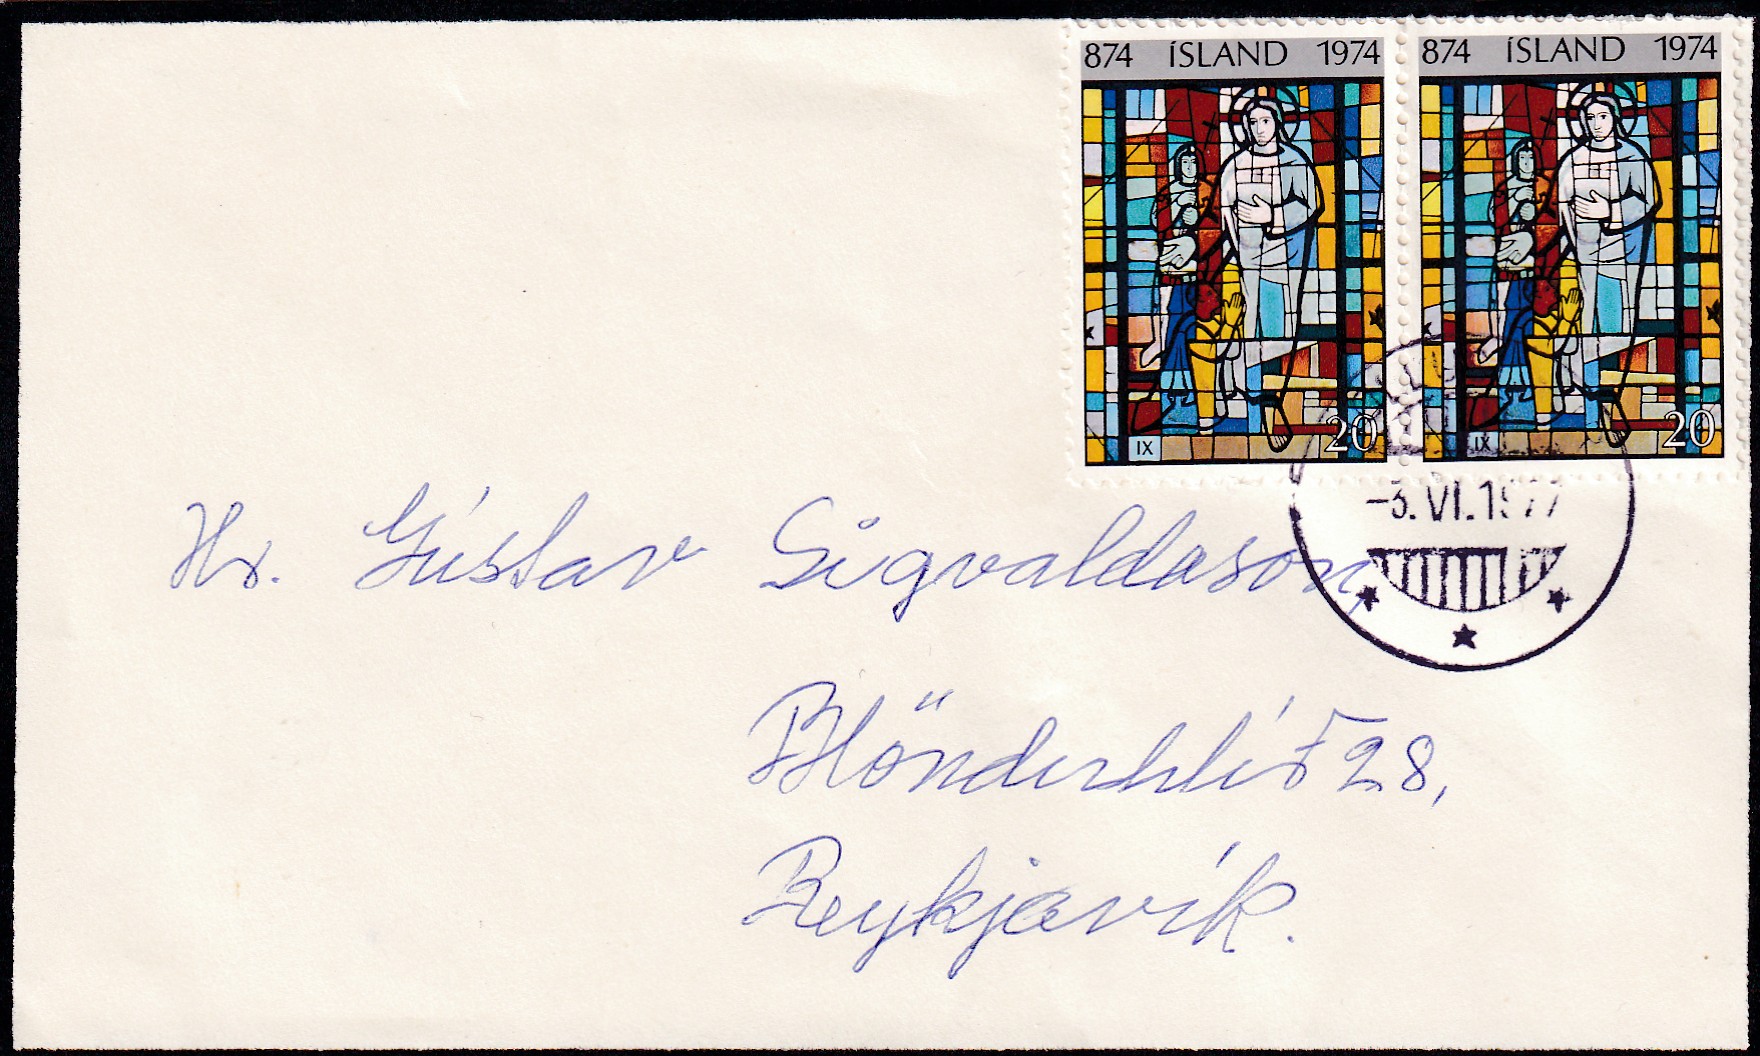 874 ÍSLAND 1974
874 ÍSLAND 1974
IX 20
IX 20
-3. VI. 1977
Hr. Gústav Sigvaldason,
Blönduhlíð 28,
Reykjavík.